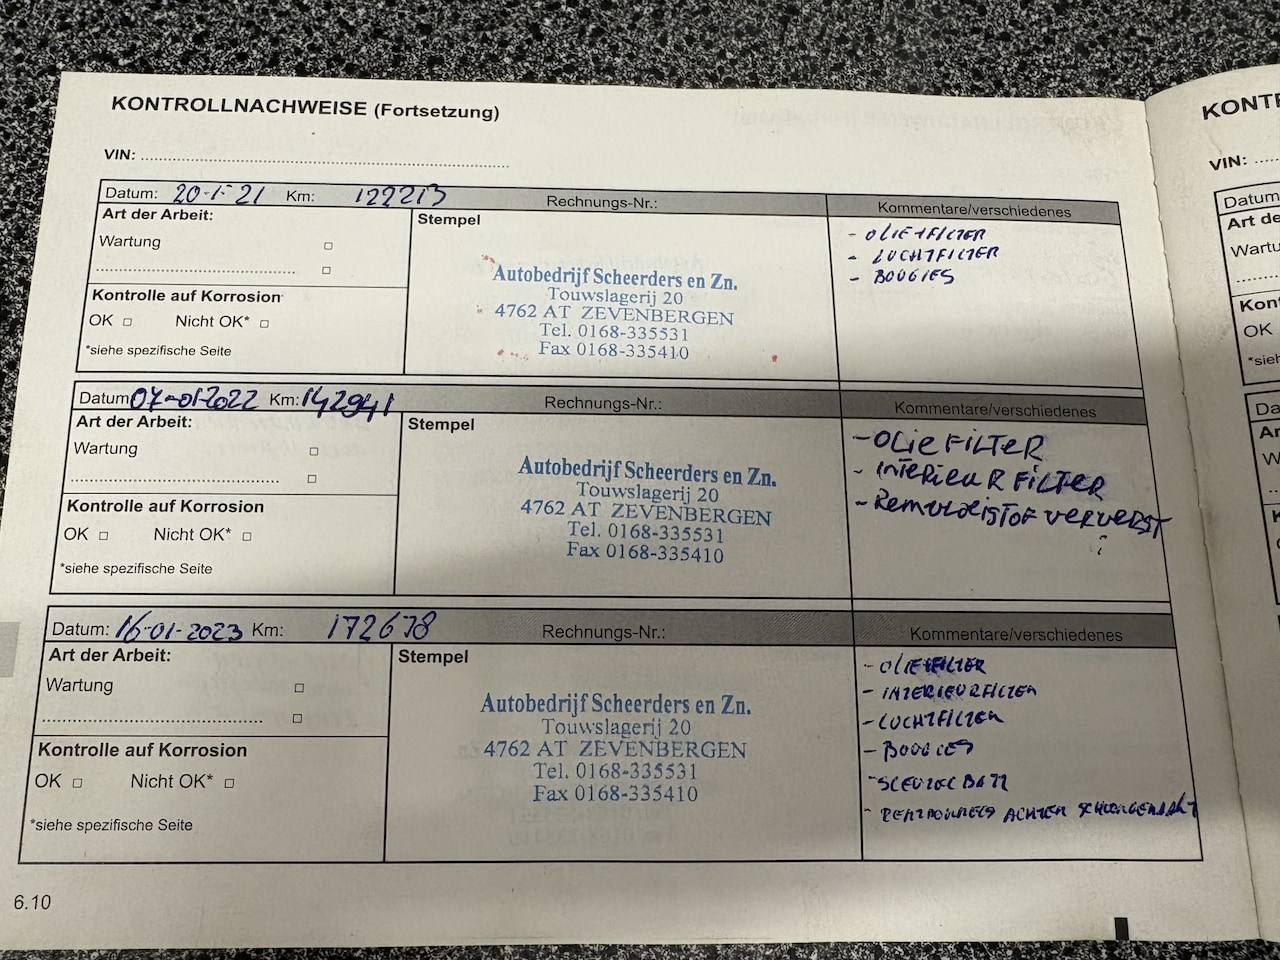 KONTROLLNACHWEISE (Fortsetzung)
VIN:
Datum: 20-1-21 Km: 122213 Rechnungs-Nr.: Kommentare/verschiedenes
Art der Arbeit:
Wartung
Kontrolle auf Korrosion
OK Nicht OK*
*siehe spezifische Seite
Stempel
Autobedrijf Scheerders en Zn.
Touwslagerij 20
4762 AT ZEVENBERGEN
Tel. 0168-335531
Fax 0168-335410
- OLIE+FILTER
- LUCHTFILTER
- BOUGIES
Datum 07-01-2022 Km: 142941 Rechnungs-Nr.: Kommentare/verschiedenes
Art der Arbeit:
Wartung
Kontrolle auf Korrosion
OK Nicht OK*
*siehe spezifische Seite
Stempel
Autobedrijf Scheerders en Zn.
Touwslagerij 20
4762 AT ZEVENBERGEN
Tel. 0168-335531
Fax 0168-335410
- OLIE FILTER
- INTERIEUR FILTER
- REMVLOEISTOF VERVERST
Datum: 16-01-2023 Km: 172678 Rechnungs-Nr.: Kommentare/verschiedenes
Art der Arbeit:
Wartung
Kontrolle auf Korrosion
OK Nicht OK*
*siehe spezifische Seite
Stempel
Autobedrijf Scheerders en Zn.
Touwslagerij 20
4762 AT ZEVENBERGEN
Tel. 0168-335531
Fax 0168-335410
- OLIE+FILTER
- INTERIEURFILTER
- LUCHTFILTER
- BOUGIES
- SLEUTEL BATT
- ACHTER
6.10
KONT
VIN:
Datum
Art de
Wartu
Kont
OK
*sieh
Da